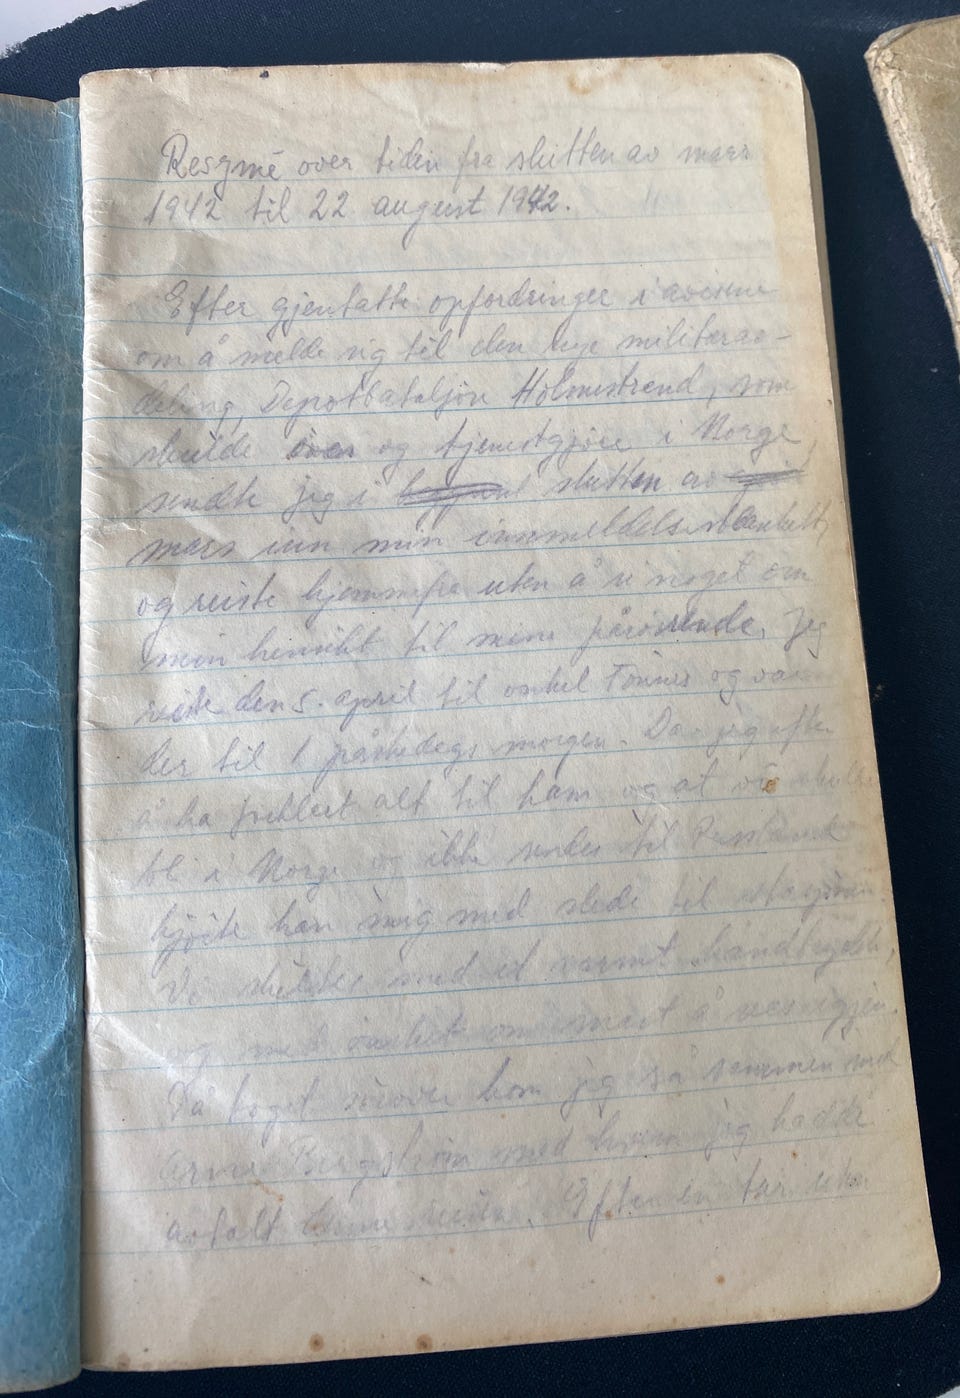 Resymé over tiden fra slutten av mars
1942 til 22 august 1942.
Efter gjentatte opfordringer i avisene
om å melde sig til den nye militærav-
deling, Depotbataljon Holmestrand, som
skulde øves og tjenestgjøre i Norge,
sendte jeg i slutten av
mars inn min innmeldelsesblankett,
og reiste hjemmefra uten å si noget om
min hensikt til mine pårørende. Jeg
reiste den 5. april til onkel Tønnes og var
der til 1 påskedags morgen. Da jeg efter
å ha forklart alt til ham og at vi skulle
bli i Norge og ikke sendes til Russland
kjørte han mig med slede til stasjonen.
Vi skiltes med et varmt håndtrykk,
og med ønsket om snart å sees igjen.
På toget sørover kom jeg så sammen med
Arne Bergstrøm med hvem jeg hadde
avtalt denne reisen. Efter en tur uten